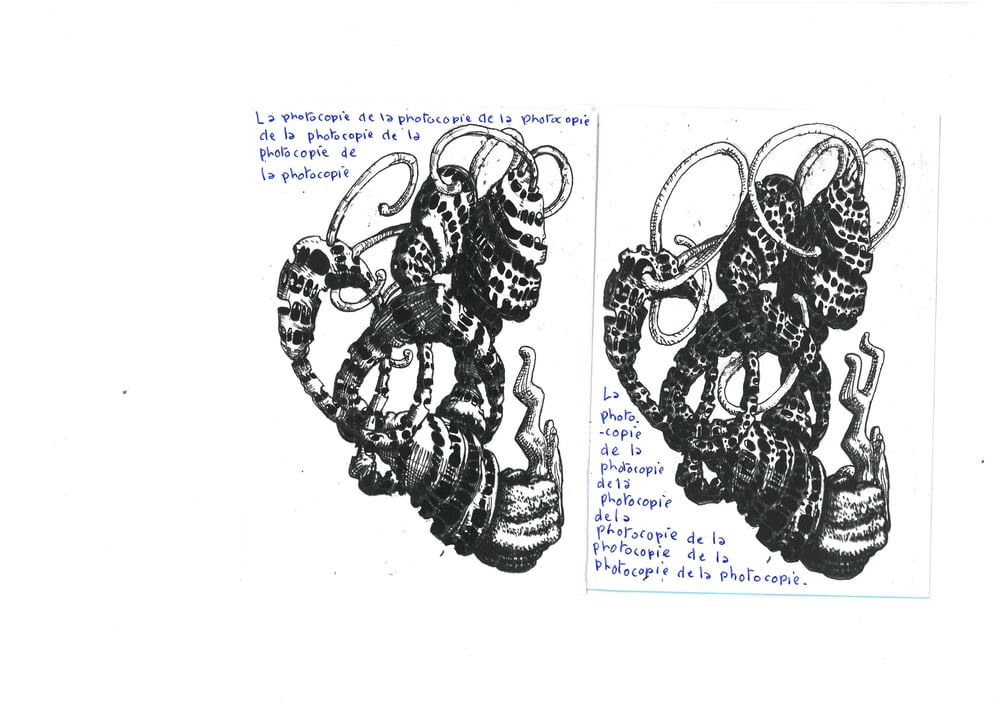 La photocopie de la photocopie de la photocopie
de la photocopie de la
photocopie de
la photocopie
La
photo.
-copie
de la
photocopie
de la
photocopie
de la
photocopie de la
photocopie de la
photocopie de la photocopie.